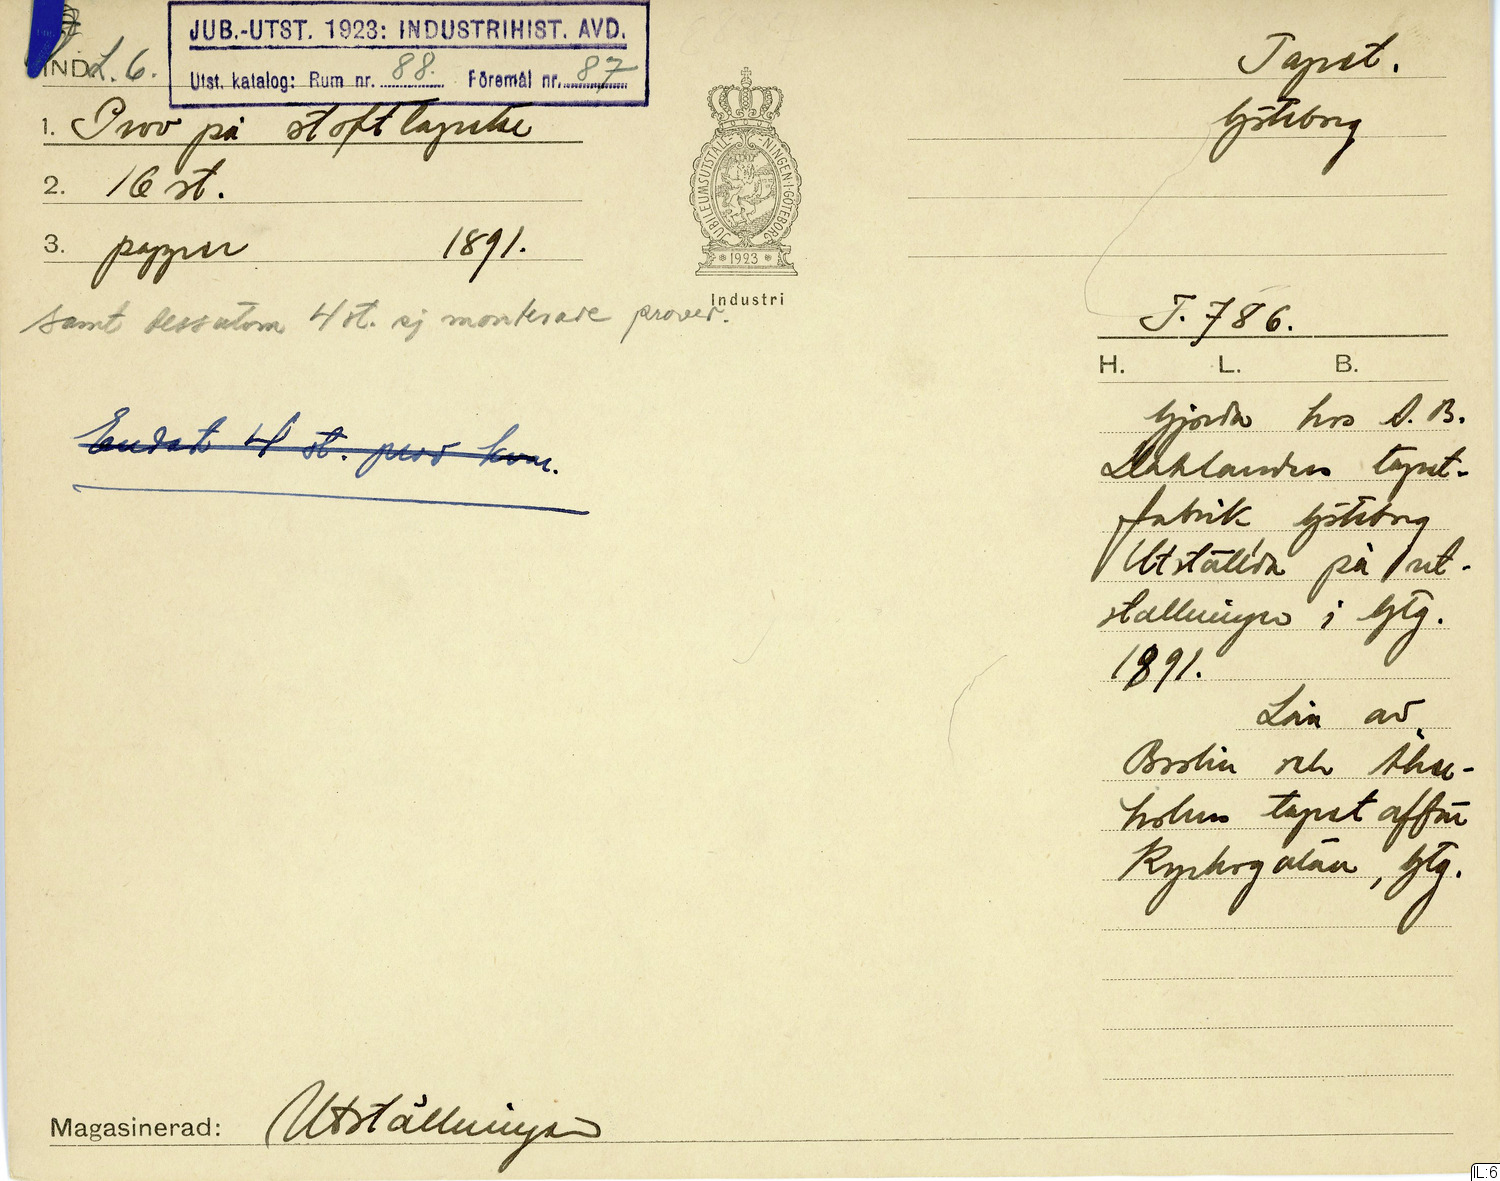 JUB.-UTST. 1923: INDUSTRIHIST. AVD.
Utst. katalog: Rum nr. 88. Föremål nr. 87
IND. L. 6.
1. Prov på stofttapeter
2. 16 st.
3. papper 1891.
samt dessutom 4 st. ej monterade prover.
Endast 4 st. prov kvar.
JUBILEUMSUTSTÄLLNINGEN I GÖTEBORG
1923
Industri
Tapet.
Göteborg
T. 786.
H. L. B.
Gjorda hos A. B.
Dahlanders tapet-
fabrik Göteborg
Utställda på ut-
ställningen i Gbg.
1891.
Lån av
Brolin och
tapetaffär
Kyrkogatan, Gbg.
Magasinerad: Utställningen
IL:6